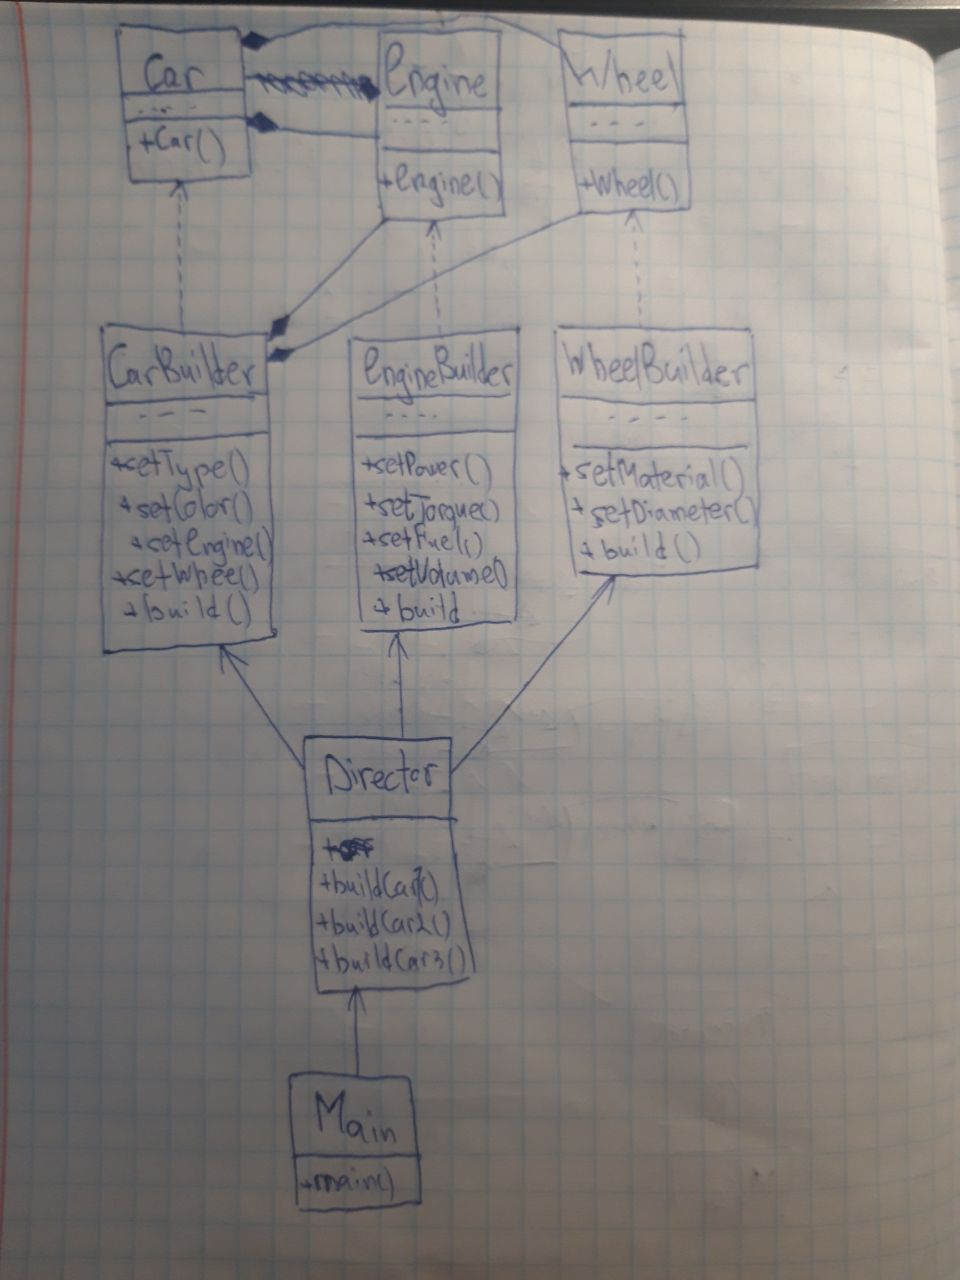 Car
+Car()
Engine
+Engine()
Wheel
+Wheel()
CarBuilder
+setType()
+setColor()
+setEngine()
+setWheel()
+build()
EngineBuilder
+setPower()
+setTorque()
+setFuel()
+setVolume()
+build
WheelBuilder
+setMaterial()
+setDiameter()
+build()
Director
+buildCar1()
+buildCar2()
+buildCar3()
Main
+main()